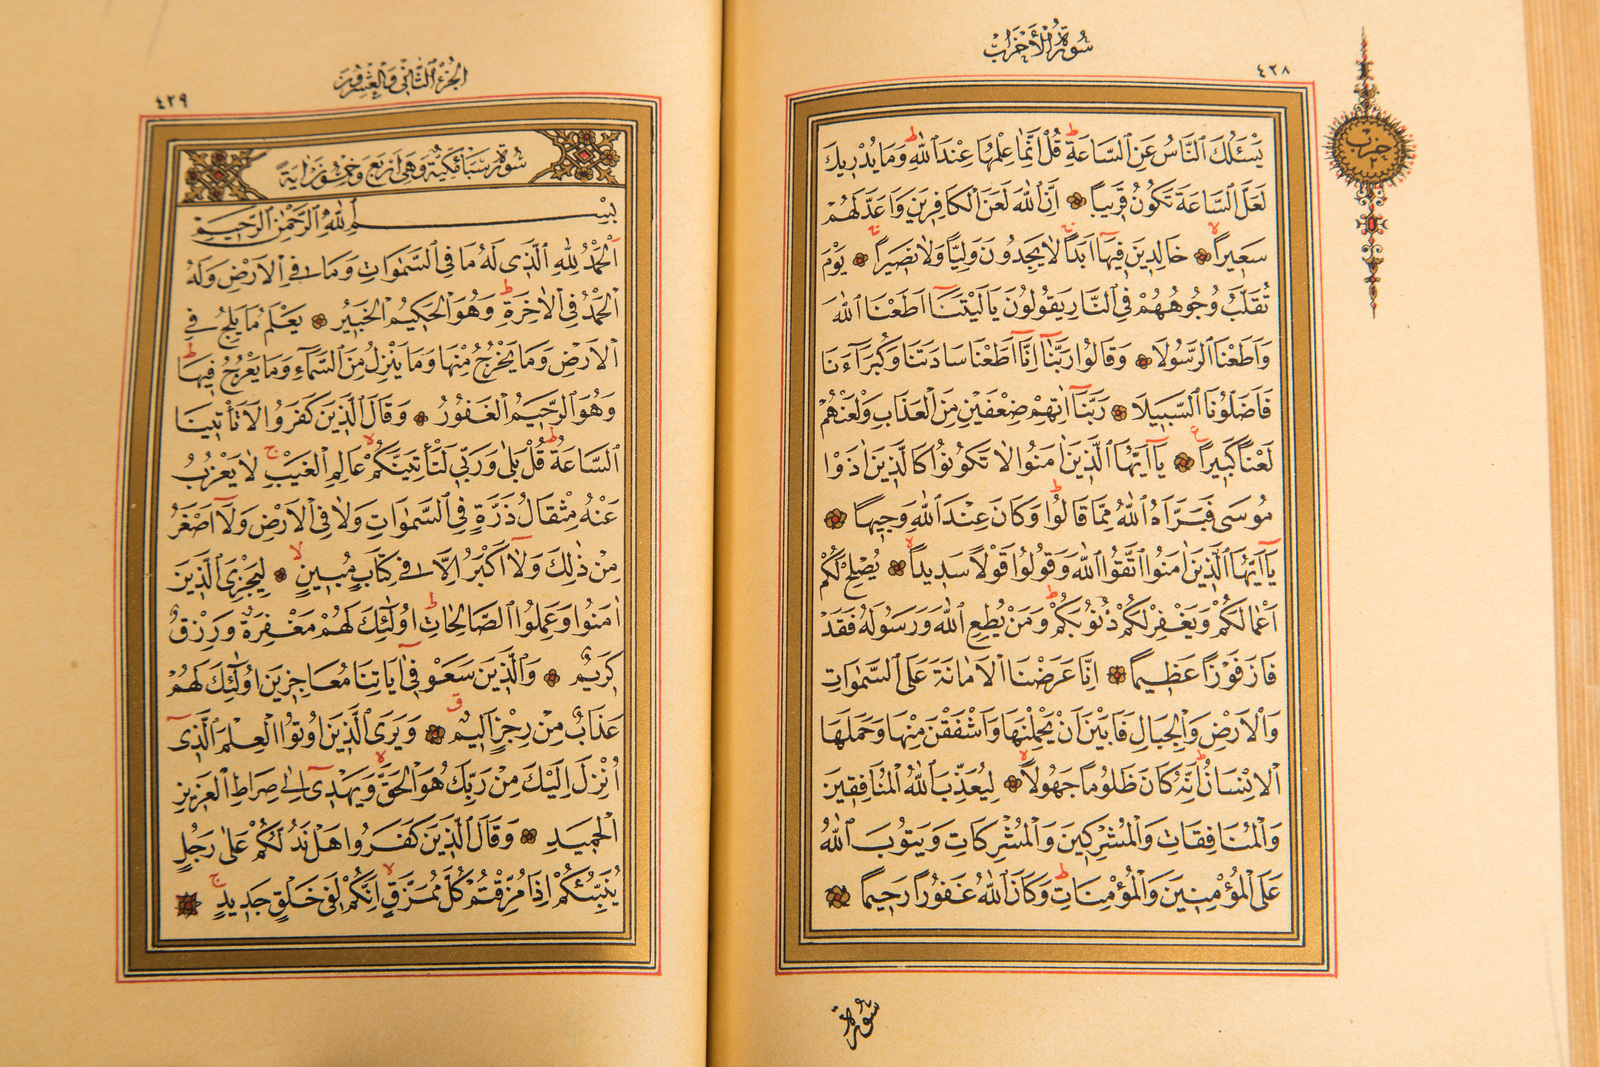 سُورَةُ الْأَحْزَابِ
٤٢٨
حِزْب
يَسْـَٔلُكَ النَّاسُ عَنِ السَّاعَةِ قُلْ اِنَّمَا عِلْمُهَا عِنْدَ اللّٰهِ وَمَا يُدْرِيكَ
لَعَلَّ السَّاعَةَ تَكُونُ قَرِيبًا اِنَّ اللّٰهَ لَعَنَ الْكَافِرِينَ وَاَعَدَّ لَهُمْ
سَعِيرًا خَالِدِينَ فِيهَٓا اَبَدًا لَا يَجِدُونَ وَلِيًّا وَلَا نَصِيرًا يَوْمَ
تُقَلَّبُ وُجُوهُهُمْ فِي النَّارِ يَقُولُونَ يَا لَيْتَنَٓا اَطَعْنَا اللّٰهَ
وَاَطَعْنَا الرَّسُولَا وَقَالُوا رَبَّنَٓا اِنَّٓا اَطَعْنَا سَادَتَنَا وَكُبَرَٓاءَنَا
فَاَضَلُّونَا السَّبِيلَا رَبَّنَٓا اٰتِهِمْ ضِعْفَيْنِ مِنَ الْعَذَابِ وَالْعَنْهُمْ
لَعْنًا كَبِيرًا يَٓا اَيُّهَا الَّذِينَ اٰمَنُوا لَا تَكُونُوا كَالَّذِينَ اٰذَوْا
مُوسٰى فَبَرَّاَهُ اللّٰهُ مِمَّا قَالُوا وَكَانَ عِنْدَ اللّٰهِ وَجِيهًا
يَٓا اَيُّهَا الَّذِينَ اٰمَنُوا اتَّقُوا اللّٰهَ وَقُولُوا قَوْلًا سَدِيدًا يُصْلِحْ لَكُمْ
اَعْمَالَكُمْ وَيَغْفِرْ لَكُمْ ذُنُوبَكُمْ وَمَنْ يُطِعِ اللّٰهَ وَرَسُولَهُ فَقَدْ
فَازَ فَوْزًا عَظِيمًا اِنَّا عَرَضْنَا الْاَمَانَةَ عَلَى السَّمٰوَاتِ
وَالْاَرْضِ وَالْجِبَالِ فَاَبَيْنَ اَنْ يَحْمِلْنَهَا وَاَشْفَقْنَ مِنْهَا وَحَمَلَهَا
الْاِنْسَانُ اِنَّهُ كَانَ ظَلُومًا جَهُولًا لِيُعَذِّبَ اللّٰهُ الْمُنَافِقِينَ
وَالْمُنَافِقَاتِ وَالْمُشْرِكِينَ وَالْمُشْرِكَاتِ وَيَتُوبَ اللّٰهُ
عَلَى الْمُؤْمِنِينَ وَالْمُؤْمِنَاتِ وَكَانَ اللّٰهُ غَفُورًا رَحِيمًا
سُورَة
الْجُزْءُ الثَّانِي وَالْعِشْرُونَ
٤٢٩
سُورَةُ سَبَأٍ مَكِّيَّةٌ وَهِيَ اَرْبَعٌ وَخَمْسُونَ اٰيَةً
بِسْمِ اللّٰهِ الرَّحْمٰنِ الرَّحِيمِ
اَلْحَمْدُ لِلّٰهِ الَّذِي لَهُ مَا فِي السَّمٰوَاتِ وَمَا فِي الْاَرْضِ وَلَهُ
الْحَمْدُ فِي الْاٰخِرَةِ وَهُوَ الْحَكِيمُ الْخَبِيرُ يَعْلَمُ مَا يَلِجُ فِي
الْاَرْضِ وَمَا يَخْرُجُ مِنْهَا وَمَا يَنْزِلُ مِنَ السَّمَٓاءِ وَمَا يَعْرُجُ فِيهَا
وَهُوَ الرَّحِيمُ الْغَفُورُ وَقَالَ الَّذِينَ كَفَرُوا لَا تَأْتِينَا
السَّاعَةُ قُلْ بَلٰى وَرَبِّي لَتَأْتِيَنَّكُمْ عَالِمِ الْغَيْبِ لَا يَعْزُبُ
عَنْهُ مِثْقَالُ ذَرَّةٍ فِي السَّمٰوَاتِ وَلَا فِي الْاَرْضِ وَلَٓا اَصْغَرُ
مِنْ ذٰلِكَ وَلَٓا اَكْبَرُ اِلَّا فِي كِتَابٍ مُبِينٍ لِيَجْزِيَ الَّذِينَ
اٰمَنُوا وَعَمِلُوا الصَّالِحَاتِ اُولٰٓئِكَ لَهُمْ مَغْفِرَةٌ وَرِزْقٌ
كَرِيمٌ وَالَّذِينَ سَعَوْ فِٓي اٰيَاتِنَا مُعَاجِزِينَ اُولٰٓئِكَ لَهُمْ
عَذَابٌ مِنْ رِجْزٍ اَلِيمٌ وَيَرَى الَّذِينَ اُوتُوا الْعِلْمَ الَّذِٓي
اُنْزِلَ اِلَيْكَ مِنْ رَبِّكَ هُوَ الْحَقَّ وَيَهْدِٓي اِلٰى صِرَاطِ الْعَزِيزِ
الْحَمِيدِ وَقَالَ الَّذِينَ كَفَرُوا هَلْ نَدُلُّكُمْ عَلٰى رَجُلٍ
يُنَبِّئُكُمْ اِذَا مُزِّقْتُمْ كُلَّ مُمَزَّقٍ اِنَّكُمْ لَفِي خَلْقٍ جَدِيدٍ